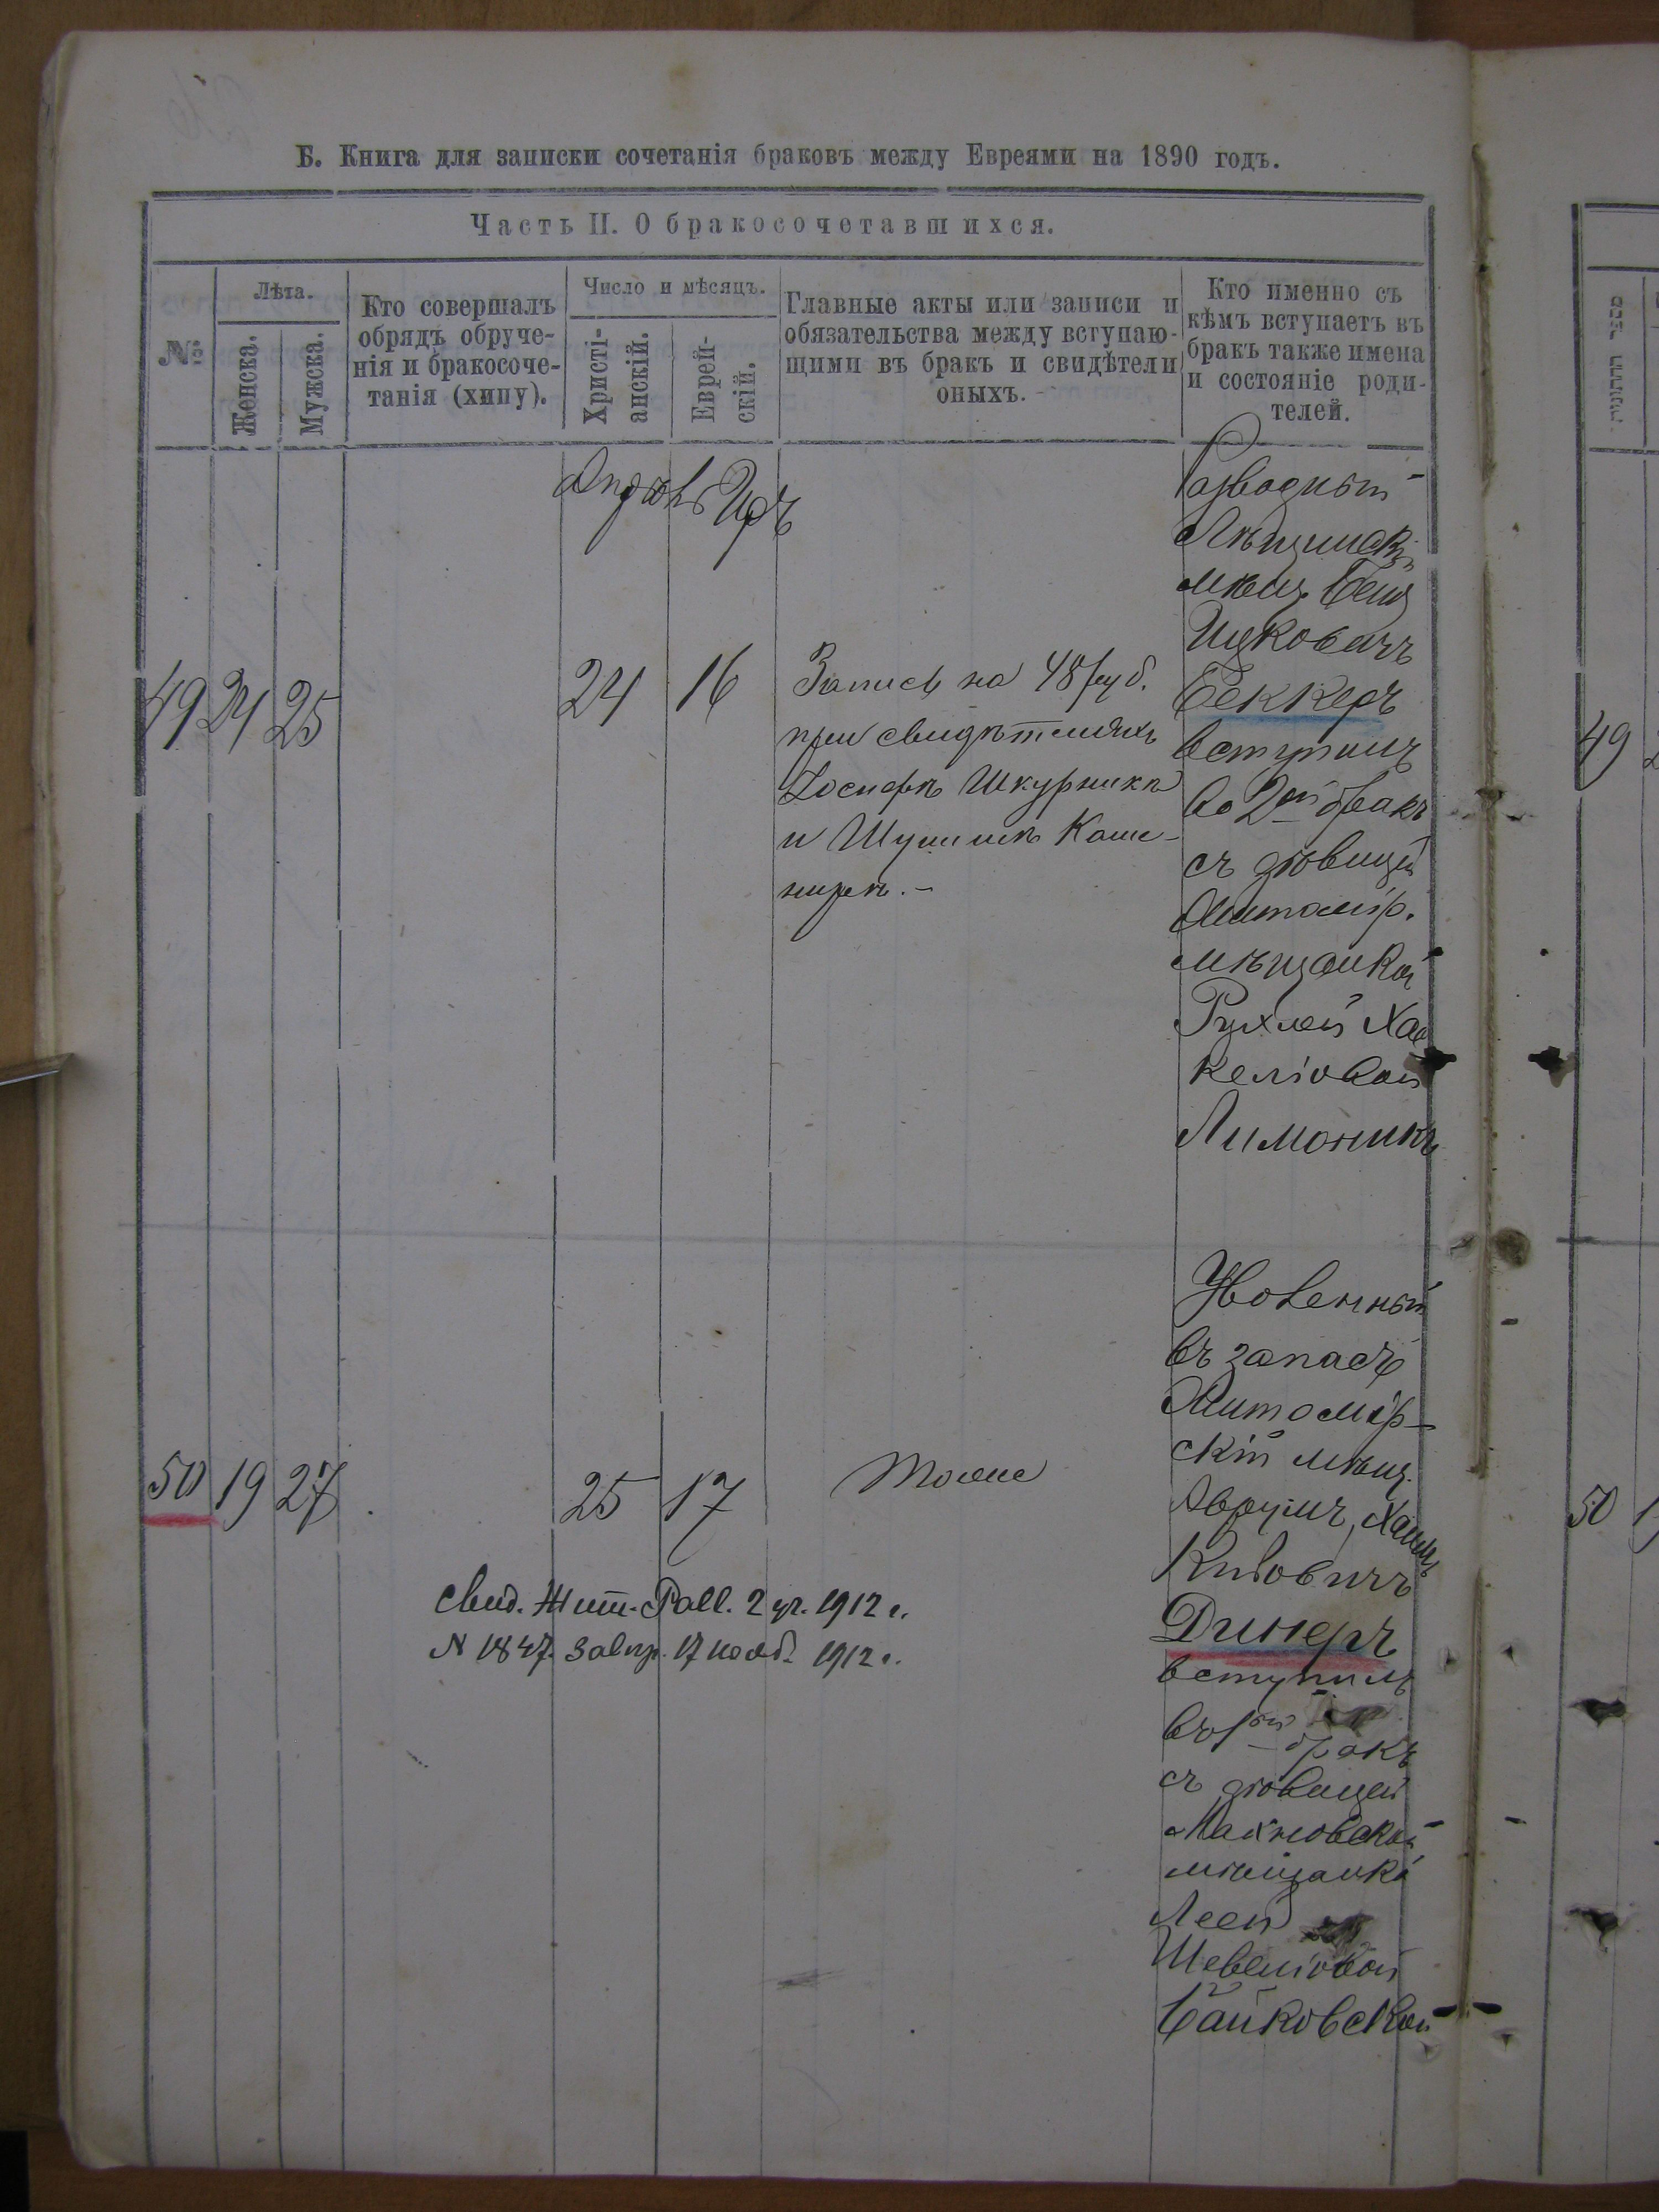 Б. Книга для записки сочетанія браковъ между Евреями на 1890 годъ.
Часть II. О бракосочетавшихся.
№
Лѣта.
Женска.
Мужска.
Кто совершалъ
обрядъ обруче-
нія и бракосоче-
танія (хипу).
Число и мѣсяцъ.
Христі-
анскій.
Еврей-
скій.
Главные акты или записи и
обязательства между вступаю-
щими въ бракъ и свидѣтели
оныхъ.
Кто именно съ
кѣмъ вступаетъ въ
бракъ также имена
и состояніе роди-
телей.
Апрѣль Иръ
49 21 25
24 16
Запись на 48 руб.
при свидѣтеляхъ
Іосифѣ Шкурникѣ
и Шулимѣ Каше-
нирѣ.-
Разводный
мѣщ.
Ицковичъ
Беккеръ
вступилъ
во 2ой бракъ
съ дѣвицей
Житомір.
мѣщанкой
Рухлей Хас
келіовой
Лимоникъ
50 19 27
25 17
Тоже
Уволенный
въ запасъ
Житомір-
скій мѣщ.
Аврумъ Хаимъ
Кивовичъ
Динеръ
вступилъ
въ 1ый
бракъ
съ дѣвицей
Махновской
мѣщанкой
Леей
Шевеліовой
Байковской
Свид. Жит. Равв. 2 уч. 1912 г.
N 1847. 17 нояб. 1912 г.
49
50